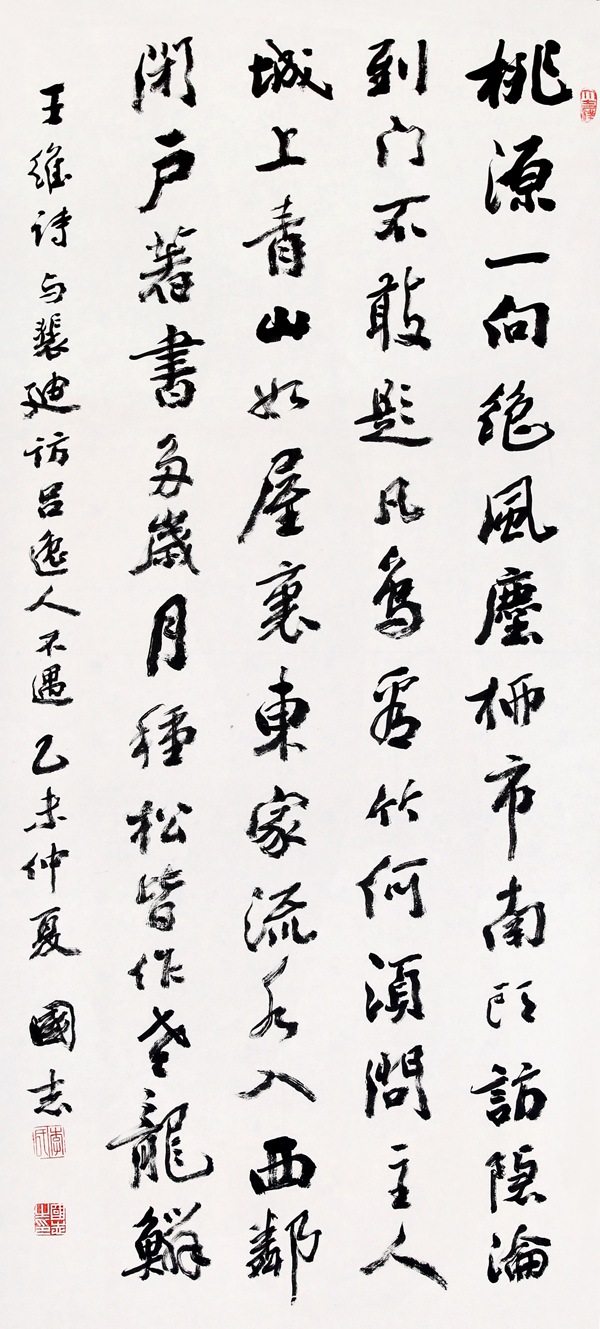 桃源一向絕風塵柳市南頭訪隱淪
到門不敢題凡鳥看竹何須問主人
城上青山如屋裏東家流水入西鄰
閉戶著書多歲月種松皆作老龍鱗
王維詩与裴迪訪呂逸人不遇 乙未仲夏 國志